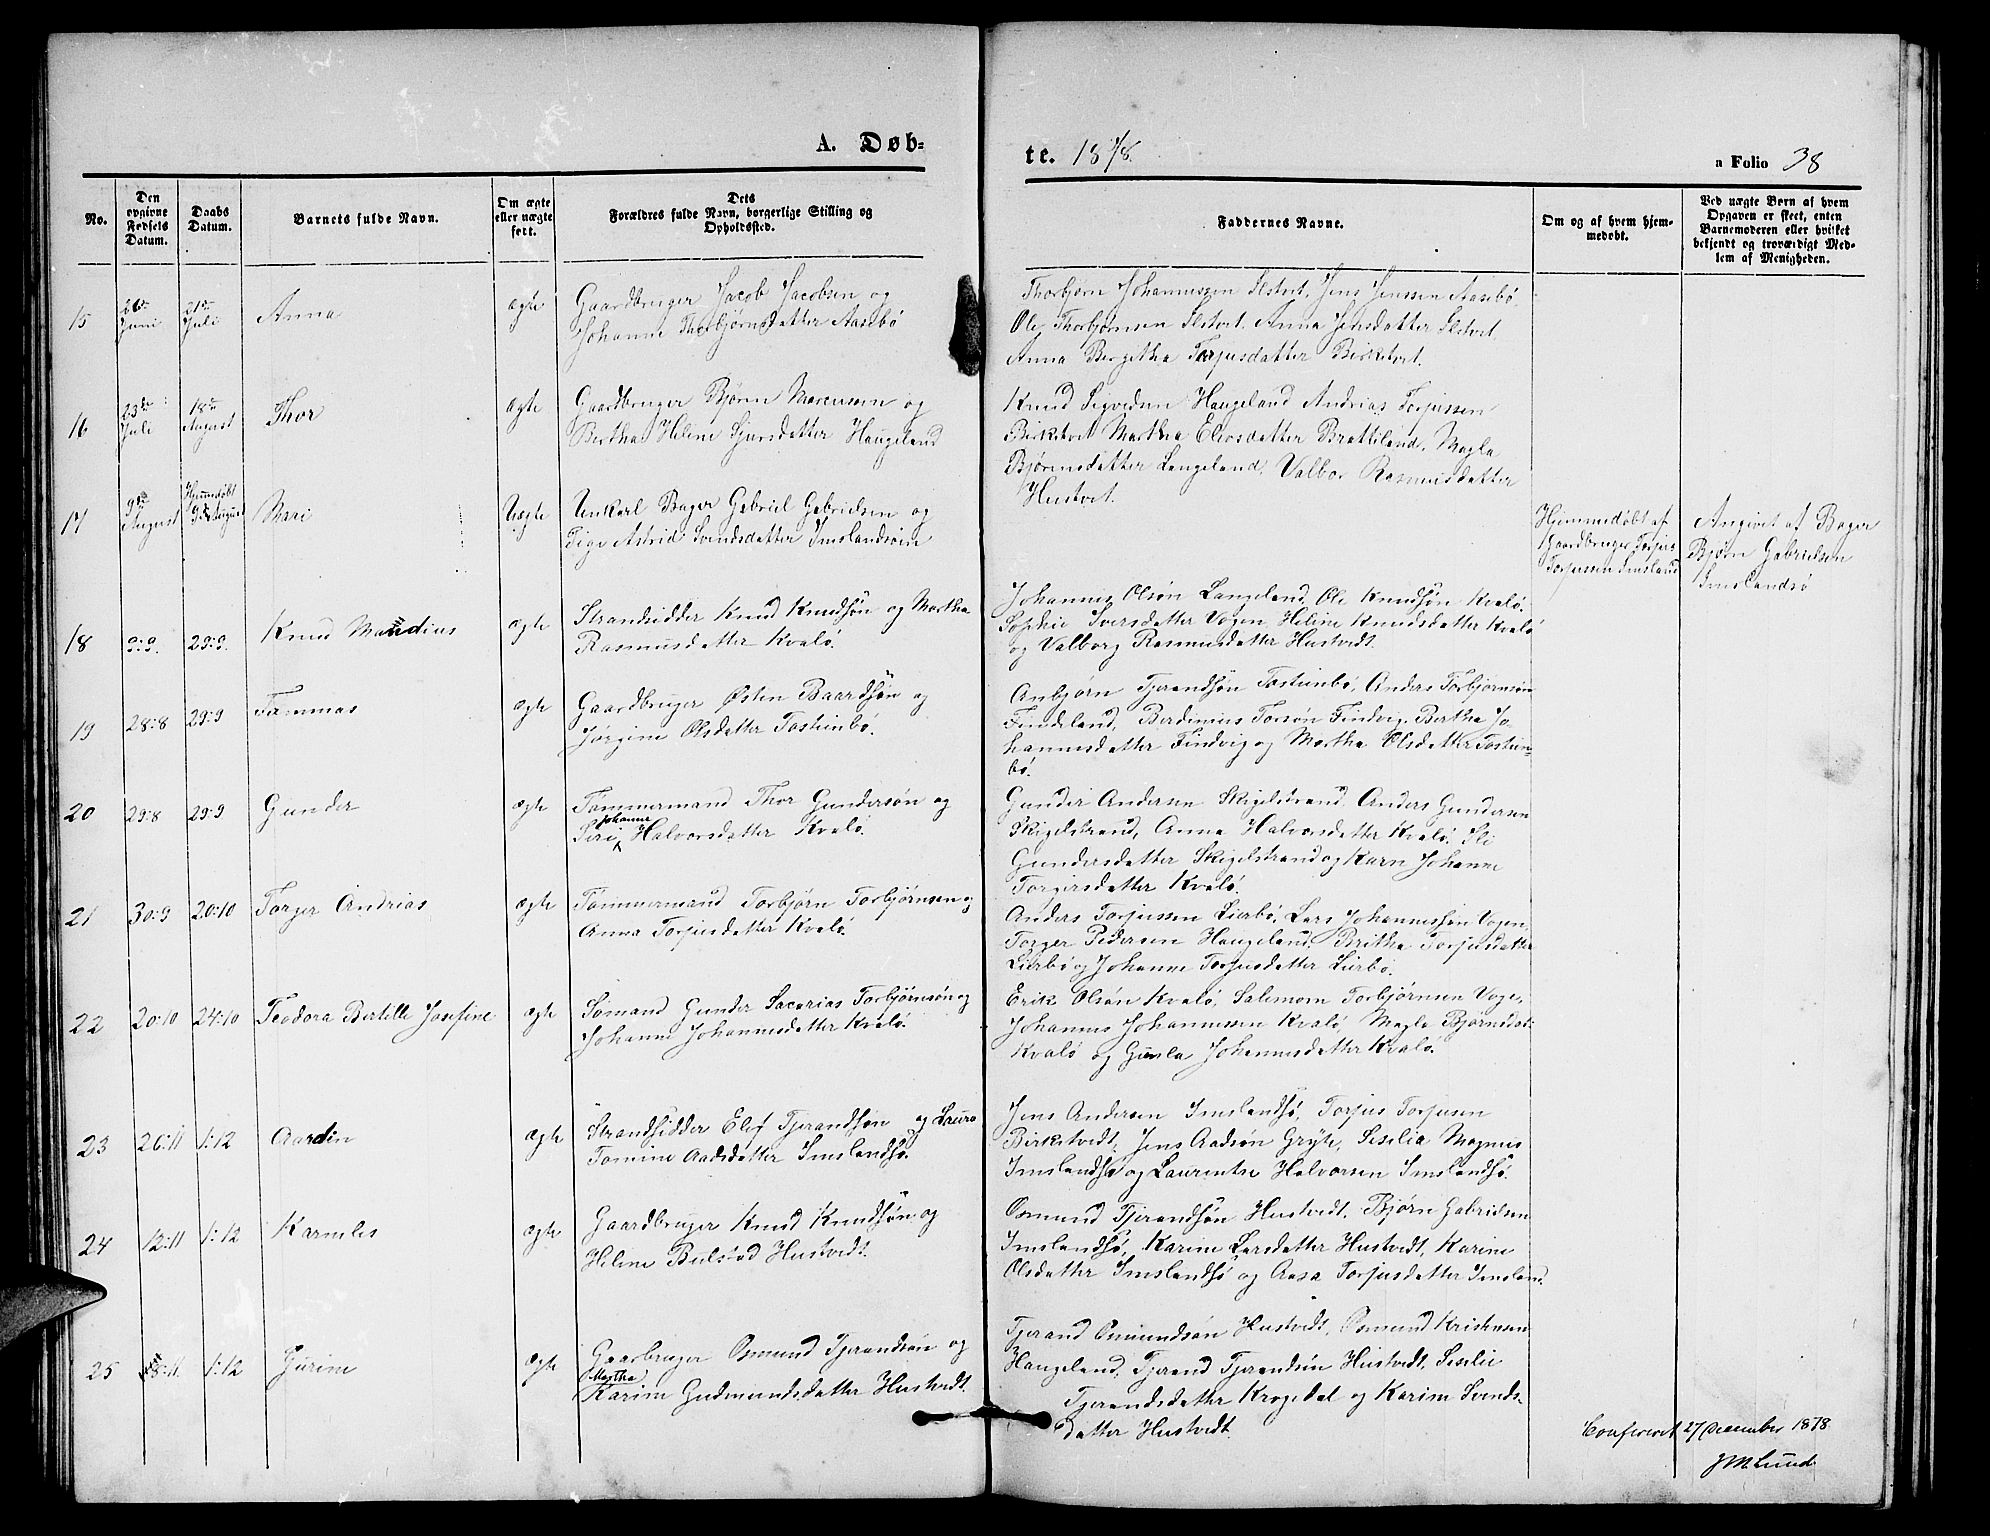 A. Døb-
te. 1878.
a Folio 38
No.
Den
opgivne
Fødsels
Datum.
Daabs
Datum.
Barnets fulde Navn.
Om ægte
eller uægte
født.
Dets
Forældres fulde Navn, borgerlige Stilling og
Opholdssted.
Faddernes Navne.
Om og af hvem hjem-
medøbt.
Ved uægte Børn af hvem
Opgaven er skeet, enten
Barnemoderen eller hvilket
bekjendt og troværdigt Med-
lem af Menigheden.
15
26de
Juni
21de
Juli
Anna
ægte
Gaardbruger Jacob Jacobsen og
Johanne Thorbjørnsdatter Aasebø
Thorbjørn Johannessen Ilstvet, Jens Jenssen Aasebø,
Ole Thorbjørnsen Ilstvet, Anna Jensdatter Ilstvet,
Anna Bergitha Torjusdatter Birkstvet.
16
23de
Juli
18de
August
Thor
ægte
Gaardbruger Bjørn Mørensen og
Bertha Helene Sjursdatter Haugeland
Knud Sigvedsen Haugeland Andrias Torjussen
Birkstvet Martha Elevsdatter Brattiland, Magla
Bjørnsdatter Langeland, Valbor Rasmusdatter
Hustvet.
17
9de
August
Hjemmdøbt
9de August
Mari
Uægte
Unkarl Bager Gabriel Gabrielsen og
Pige Astrid Svendsdatter Imslandsøen
Hjemmedøbt af
Gaardbruger Torjus
Torjussen Imsland
Angivet af Bager
Bjørn Gabrielsen
Imslandsø
18
9:9.
29:9.
Knud Mandius
ægte
Strandsidder Knud Knudsøn og Martha
Rasmusdatter Kvalø.
Johannes Olsøn Langeland, Ole Knudsøn Kvalø.
Sophie Iversdatter Vogen, Helene Knudsdatter Kvalø
og Valborg Rasmusdatter Hustvedt.
19
28:8
29:9
Tommas
ægte
Gaardbruger Østen Baardsøn og
Jørgine Olsdatter Tosteinbø.
Anbjørn Tjerandsøn Tosteinbø, Anders Torbjørnsøn
Findeland, Berdinius Torsøn Findvig, Bertha Jo-
hannesdatter Findvig og Martha Olsdatter Tostein-
bø.
20
29:8
29:9
Gunder
ægte
Tømmermand Thor Gundersøn og
Johanne
Siri Halvorsdatter Kvalø.
Gunder Andersen Skigelstrand, Anders Gundersen
Skigelstrand, Anna Halvorsdatter Kvalø, Ili
Gundersdatter Skigelstrand og Karn Johanne
Torgersdatter Kvalø.
21
30:9
20:10
Torger Andrias
ægte
Tømmermand Torbjørn Torbjørnsen og
Anna Torjusdatter Kvalø.
Anders Torjussen Lierbø, Lars Johannessøn Vogen,
Torger Pedersen Haugeland, Britha Torjusdatter
Lierbø og Johanne Torjusdatter Lierbø.
22
20:10
24:10
Teodora Bertille Josefine
ægte
Sømand Gunder Sacarias Torbjørnsøn og
Johanne Johannesdatter Kvalø.
Erik Olsøn Kvalø, Salemom Torbjørnsen Voge,
Johannes Johannessen Kvalø, Magla Bjørnsdat-
Kvalø og Gunla Johannesdatter Kvalø.
23
26:11
1:12
Aardin
ægte
Strandsidder Elef Tjerandsøn og Laura
Tomine Aadsdatter Imslandsø.
Jens Andersen Imslandsø, Torjus Torjusen
Birkstvedt, Jens Aadsøn Gryte, Sesilia Magnus
Imslandsø og Laurentse Halvorsen Imslandsø.
24
12:11
1:12
Karneles
ægte
Gaardbruger Knud Knudsøn og
Helene Bielstad Hustvedt.
Osmund Tjerandsøn Hustvedt, Bjørn Gabrielsen
Imslandsø, Karine Larsdatter Hustvedt, Karine
Olsdatter Imslandsø og Aasa Torjusdatter Imsland.
25
8:11
1:12
Gurine
ægte
Gaarbruger Osmund Tjerandsøn og
Martha
Karine Gudmundsdatter Hustvedt.
Tjerand Osmundsøn Hustvedt, Osmund Kristensen
Haugeland, Tjerand Tjerandsøn Hustvedt, Sesilie
Tjerandsdatter Krogedal og Karine Svends-
datter Hustvedt.
Confereret 27 December 1878.
JMLund